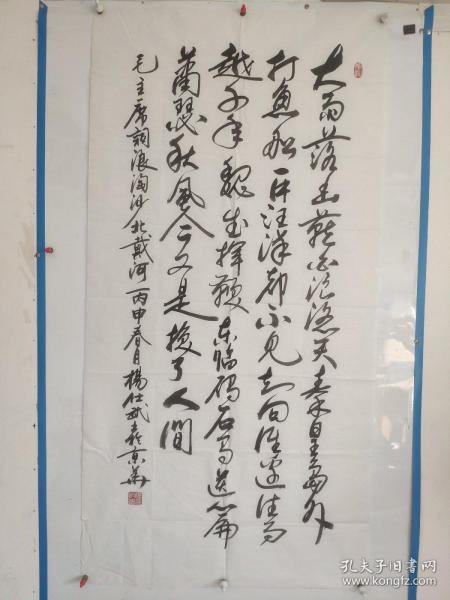 大雨落幽燕白浪滔天秦皇島外
打魚船一片汪洋都不見知向誰邊往事
越千年魏武揮鞭東臨碣石有遺篇
蕭瑟秋風今又是換了人間
毛主席詞浪淘沙北戴河丙申春月楊仕武書京華
孔夫子旧书网
www.kongfz.com